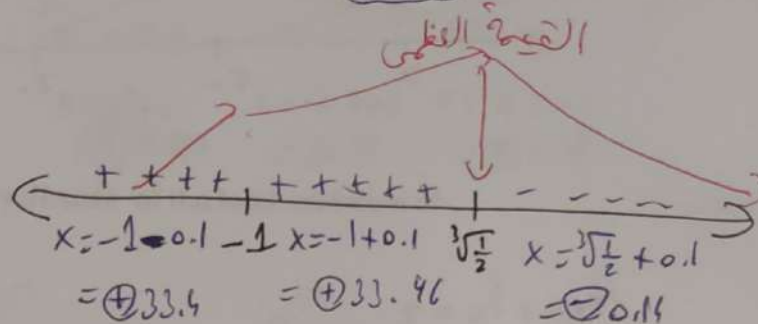 القيمة العظمى
+ + + + + + + + + - - - - -
x=-1-0.1 -1 x=-1+0.1 ∛1/2 x=∛1/2+0.1
=⊕33.4 =⊕33.46 =⊖0.14